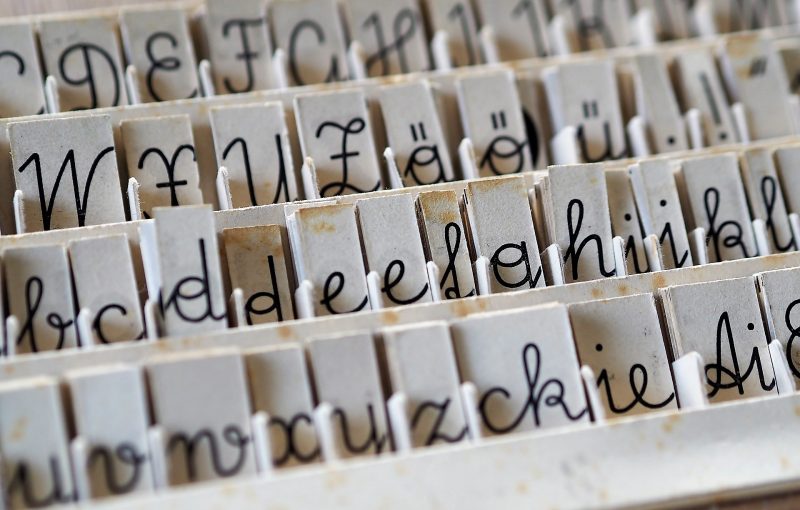 C D E F G H I J K
W X Y Z ä ö ü . !
b c d d e e f g h i j i k l
u v w x y z ck ie Ai